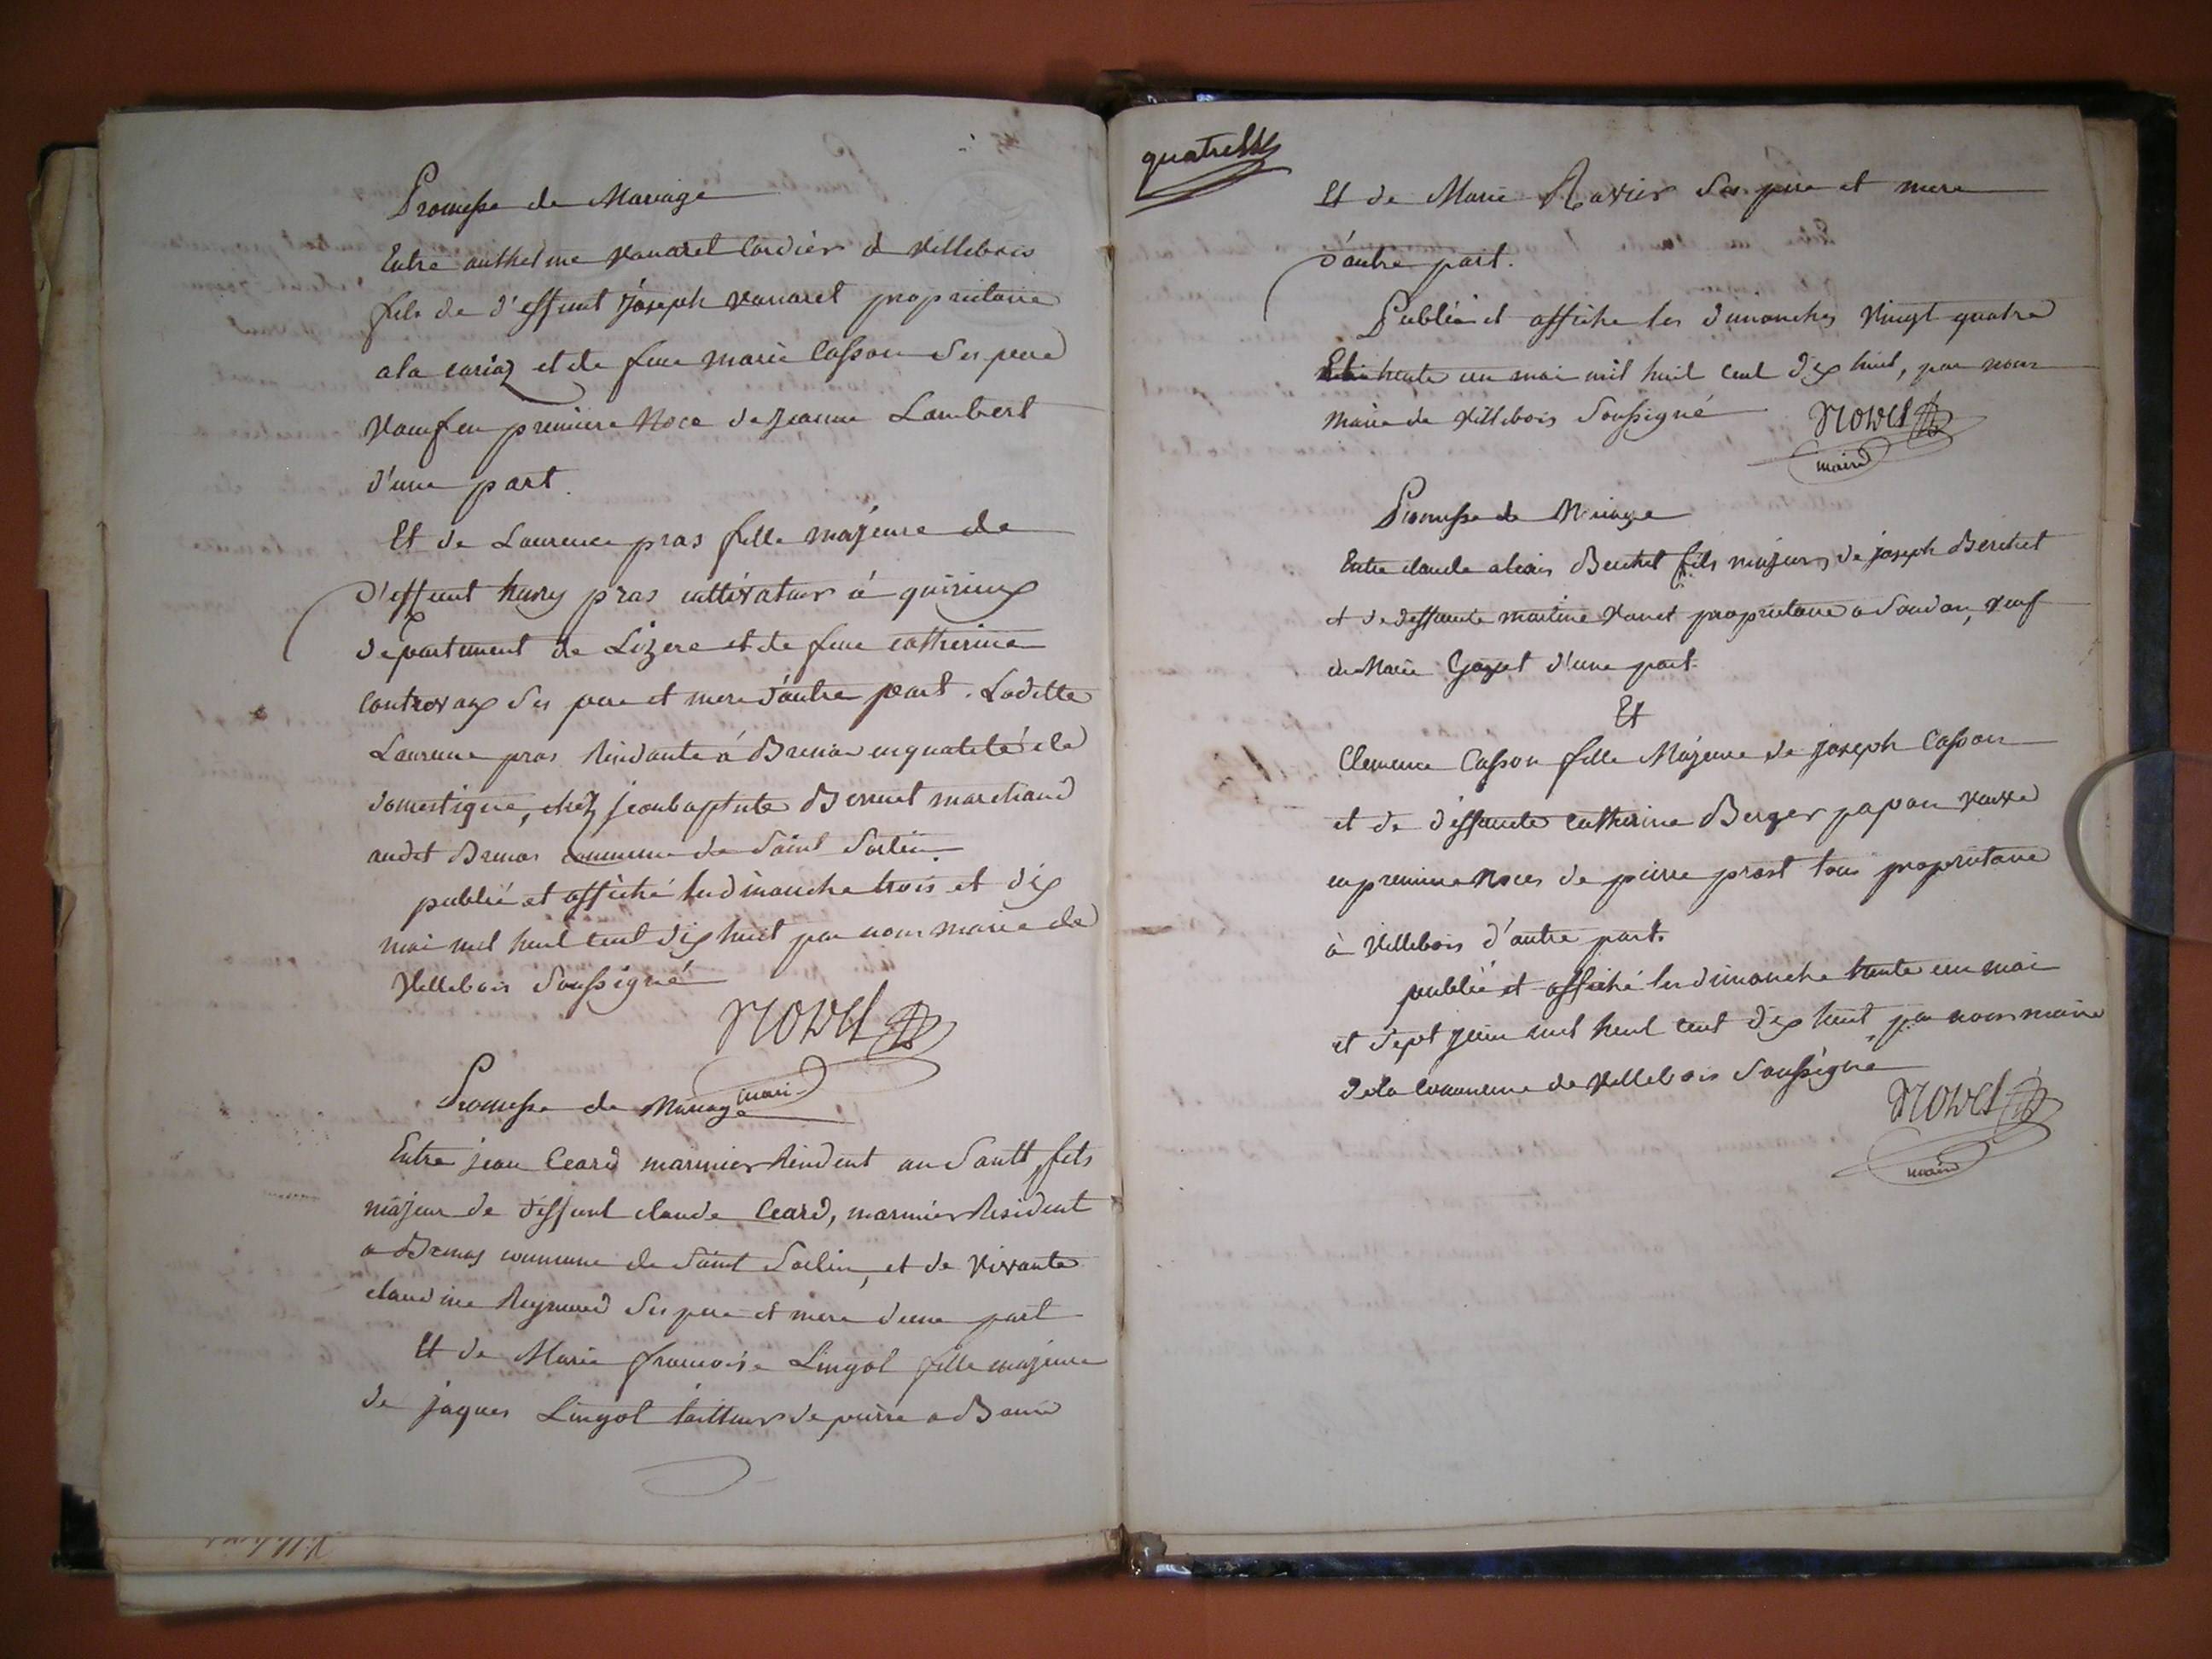 Promesse de Mariage
Entre anthelme vanarel Cordier à Villebois
fils de d'effunt joseph vanarel propriétaire
a la cariaz et de feue marie Casson ses pere
Vauf en premiere Noce de jeanne Lambert
d'une part.
Et de Laurence pras fille majeure de
d'effunt henry pras cultivateur à quirieux
departement de Lizere et de feue catherine
ses pere et mere d'autre part. Laditte
Laurence pras Résidante à Brenas en qualité de
domestique, chéz jean baptiste Bernet marchand
audit Brenas commune de Saint Sorlin.
publié et affiché les dimanche trois et dix
mai mil huit cent dix huit par nous maire de
Villebois Soussigné
NOWEL
maire
Promesse de Mariage
Entre jean Ceard marinier Résident au Sault, fils
majeur de d'effunt claude Ceard, marinier Résident
a Brenas commune de Saint Sorlin, et de Vivante
claudine Reymond ses pere et mere d'une part
Et de Marie francoise Lingol fille majeure
de jaques Lingol tailleur de pierre a
quatre
Et de Marie Ravier Ses pere et mere
d'autre part.
Publié et affiche les dimanches Vingt quatre
Et trente un mai mil huit cent dix huit, par nous
Maire de Villebois Soussigné
NOWEL
maire
Promesse de Mariage
Entre claude alexis Berchet fils majeur de joseph Berchet
et de deffunte martine Vanet propriétaire a Soudon, veuf
de Marie Gozet d'une part.
Et
Clemence Casson fille Majeure de joseph Casson
et de d'effunte catherine Berger papon veuve
en premiere noces de pierre prost tous propriétaire
à Villebois d'autre part.
publié et affiché les dimanche trente un mai
et sept juin mil huit cent dix huit, par nous maire
de la Commune de Villebois Soussigné
NOWEL
maire